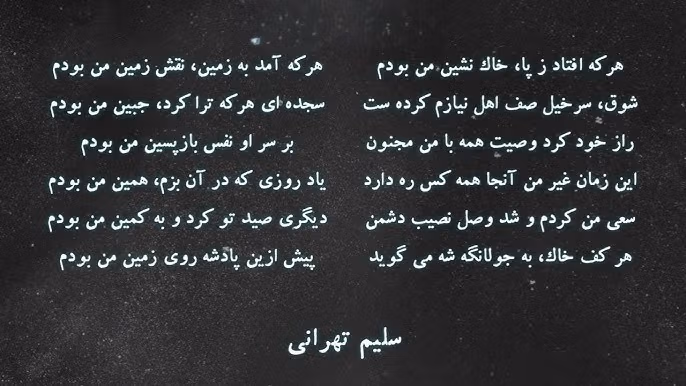 هرکه افتاد ز پا، خاك نشین من بودم    هرکه آمد به زمین، نقش زمین من بودم
شوق، سرخیل صف اهل نیازم کرده ست    سجده ای هرکه ترا کرد، جبین من بودم
راز خود کرد وصیت همه با من مجنون    بر سر او نفس بازپسین من بودم
این زمان غیر من آنجا همه کس ره دارد    یاد روزی که در آن بزم، همین من بودم
سعی من کردم و شد وصل نصیب دشمن    دیگری صید تو کرد و به کمین من بودم
هر کف خاك، به جولانگه شه می گوید    پیش ازین پادشه روی زمین من بودم
سلیم تهرانی